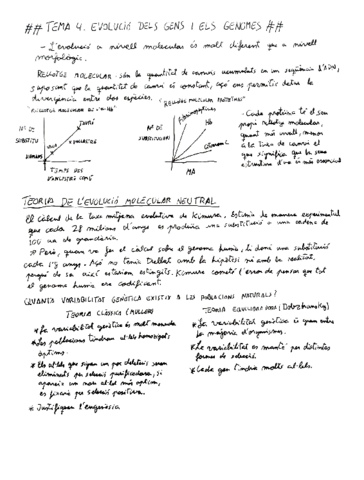 ## TEMA 4. EVOLUCIÓ DELS GENS I ELS GENOMES ##
- L'evolució a nivell molecular és molt diferent que a nivell
morfològic.
RELLOTGE MOLECULAR: són la quantitat de canvis acumulats en una seqüència d'ADN,
suposant que la quantitat de canvis és constant, açò ens permet
divergència entre dos espècies.
"RELLOTGE MOLECULAR PROTEÏNES"
Nº DE
SUBSTITU
HUMANS
TEMPS DES
Nº DE
SUBSTITUCIONS
Fibrinopèptids
Hb
Citocrom C
MA
- Cada proteïna té el seu
propi rellotge molecular,
quant més nivell, menor
és la taxa de canvi el
que significa que la seua
estructura és més essencial
TEORIA DE L'EVOLUCIÓ MOLECULAR NEUTRAL
El càlcul de la taxa mitjana evolutiva de Kimura. Estima de manera experimental
que cada 28 milions d'anys es produïx una substitució en una cadena de
100 aa de grandària.
Però, quan va fer el càlcul sobre el genoma humà, li donà una substitució
cada 1'5 anys. Açò no tenia trellat amb la hipòtesi ni amb la realitat,
perquè de ser així estaríem extingits. Kimura cometé l'error de pensar que tot
el genoma humà era codificant.
QUANTA VARIABILITAT GENÈTICA EXISTIX A LES POBLACIONS NATURALS?
TEORIA CLÀSSICA (MULLER)
* La variabilitat genètica és molt menuda
* Les poblacions tindran al·lels homozigots
òptims.
* Els al·lels que siguen un poc deleteris seran
eliminats per selecció purificadora, si
apareix un nou al·lel més òptim,
es fixarà per selecció positiva.
* Justifiquen l'eugenèsia.
TEORIA EQUILIBRADORA (Dobzhansky)
* La variabilitat genètica és gran entre
la majoria d'organismes.
* La variabilitat es manté per distintes
formes de selecció.
* Cada gen tindria molts al·lels.